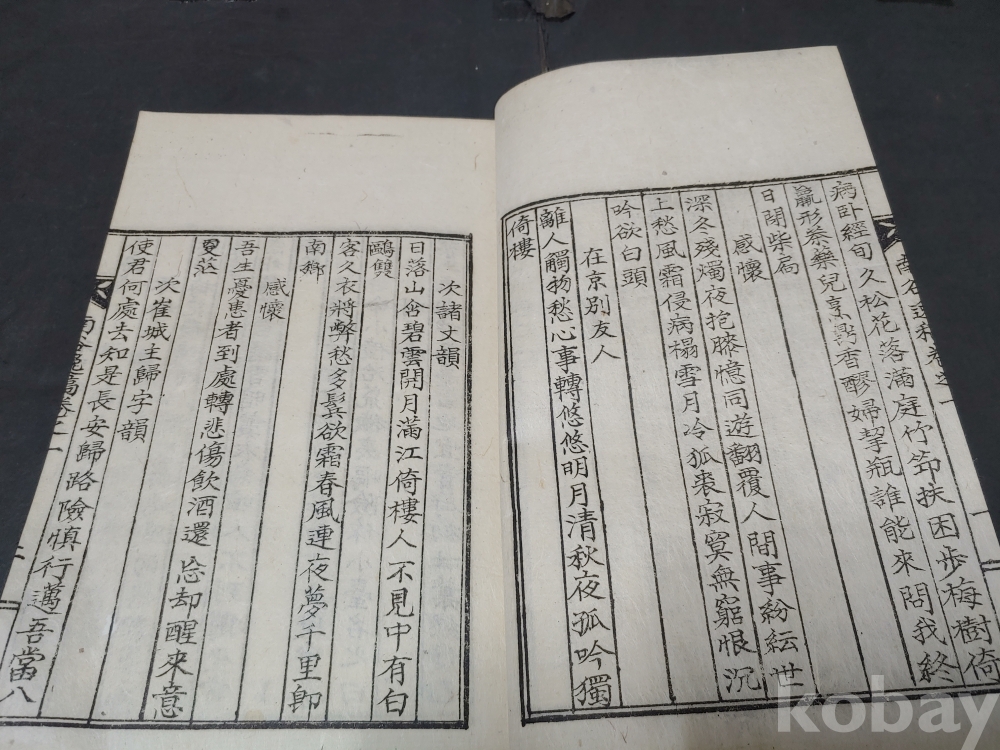 病卧經旬久松花落滿庭竹笻扶困步梅樹倚
羸形蔘藥兒烹鼎香醪婦挈瓶誰能來問我終
日閉柴扃
感懷
深冬殘燭夜抱膝憶同遊翻覆人間事紛紜世
上愁風霜侵病榻雪月冷狐裘寂寞無窮恨沉
吟欲白頭
在京別友人
離人觸物愁心事轉悠悠明月清秋夜孤吟獨
倚樓
次諸丈韻
日落山含碧雲開月滿江倚樓人不見中有白
鷗雙
客久衣將弊愁多鬂欲霜春風連夜夢千里卽
南鄉
感懷
吾生憂患者到處轉悲傷飮酒還忘却醒來意
更茫
次崔城主歸字韻
使君何處去知是長安歸路險愼行邁吾當八
kobay